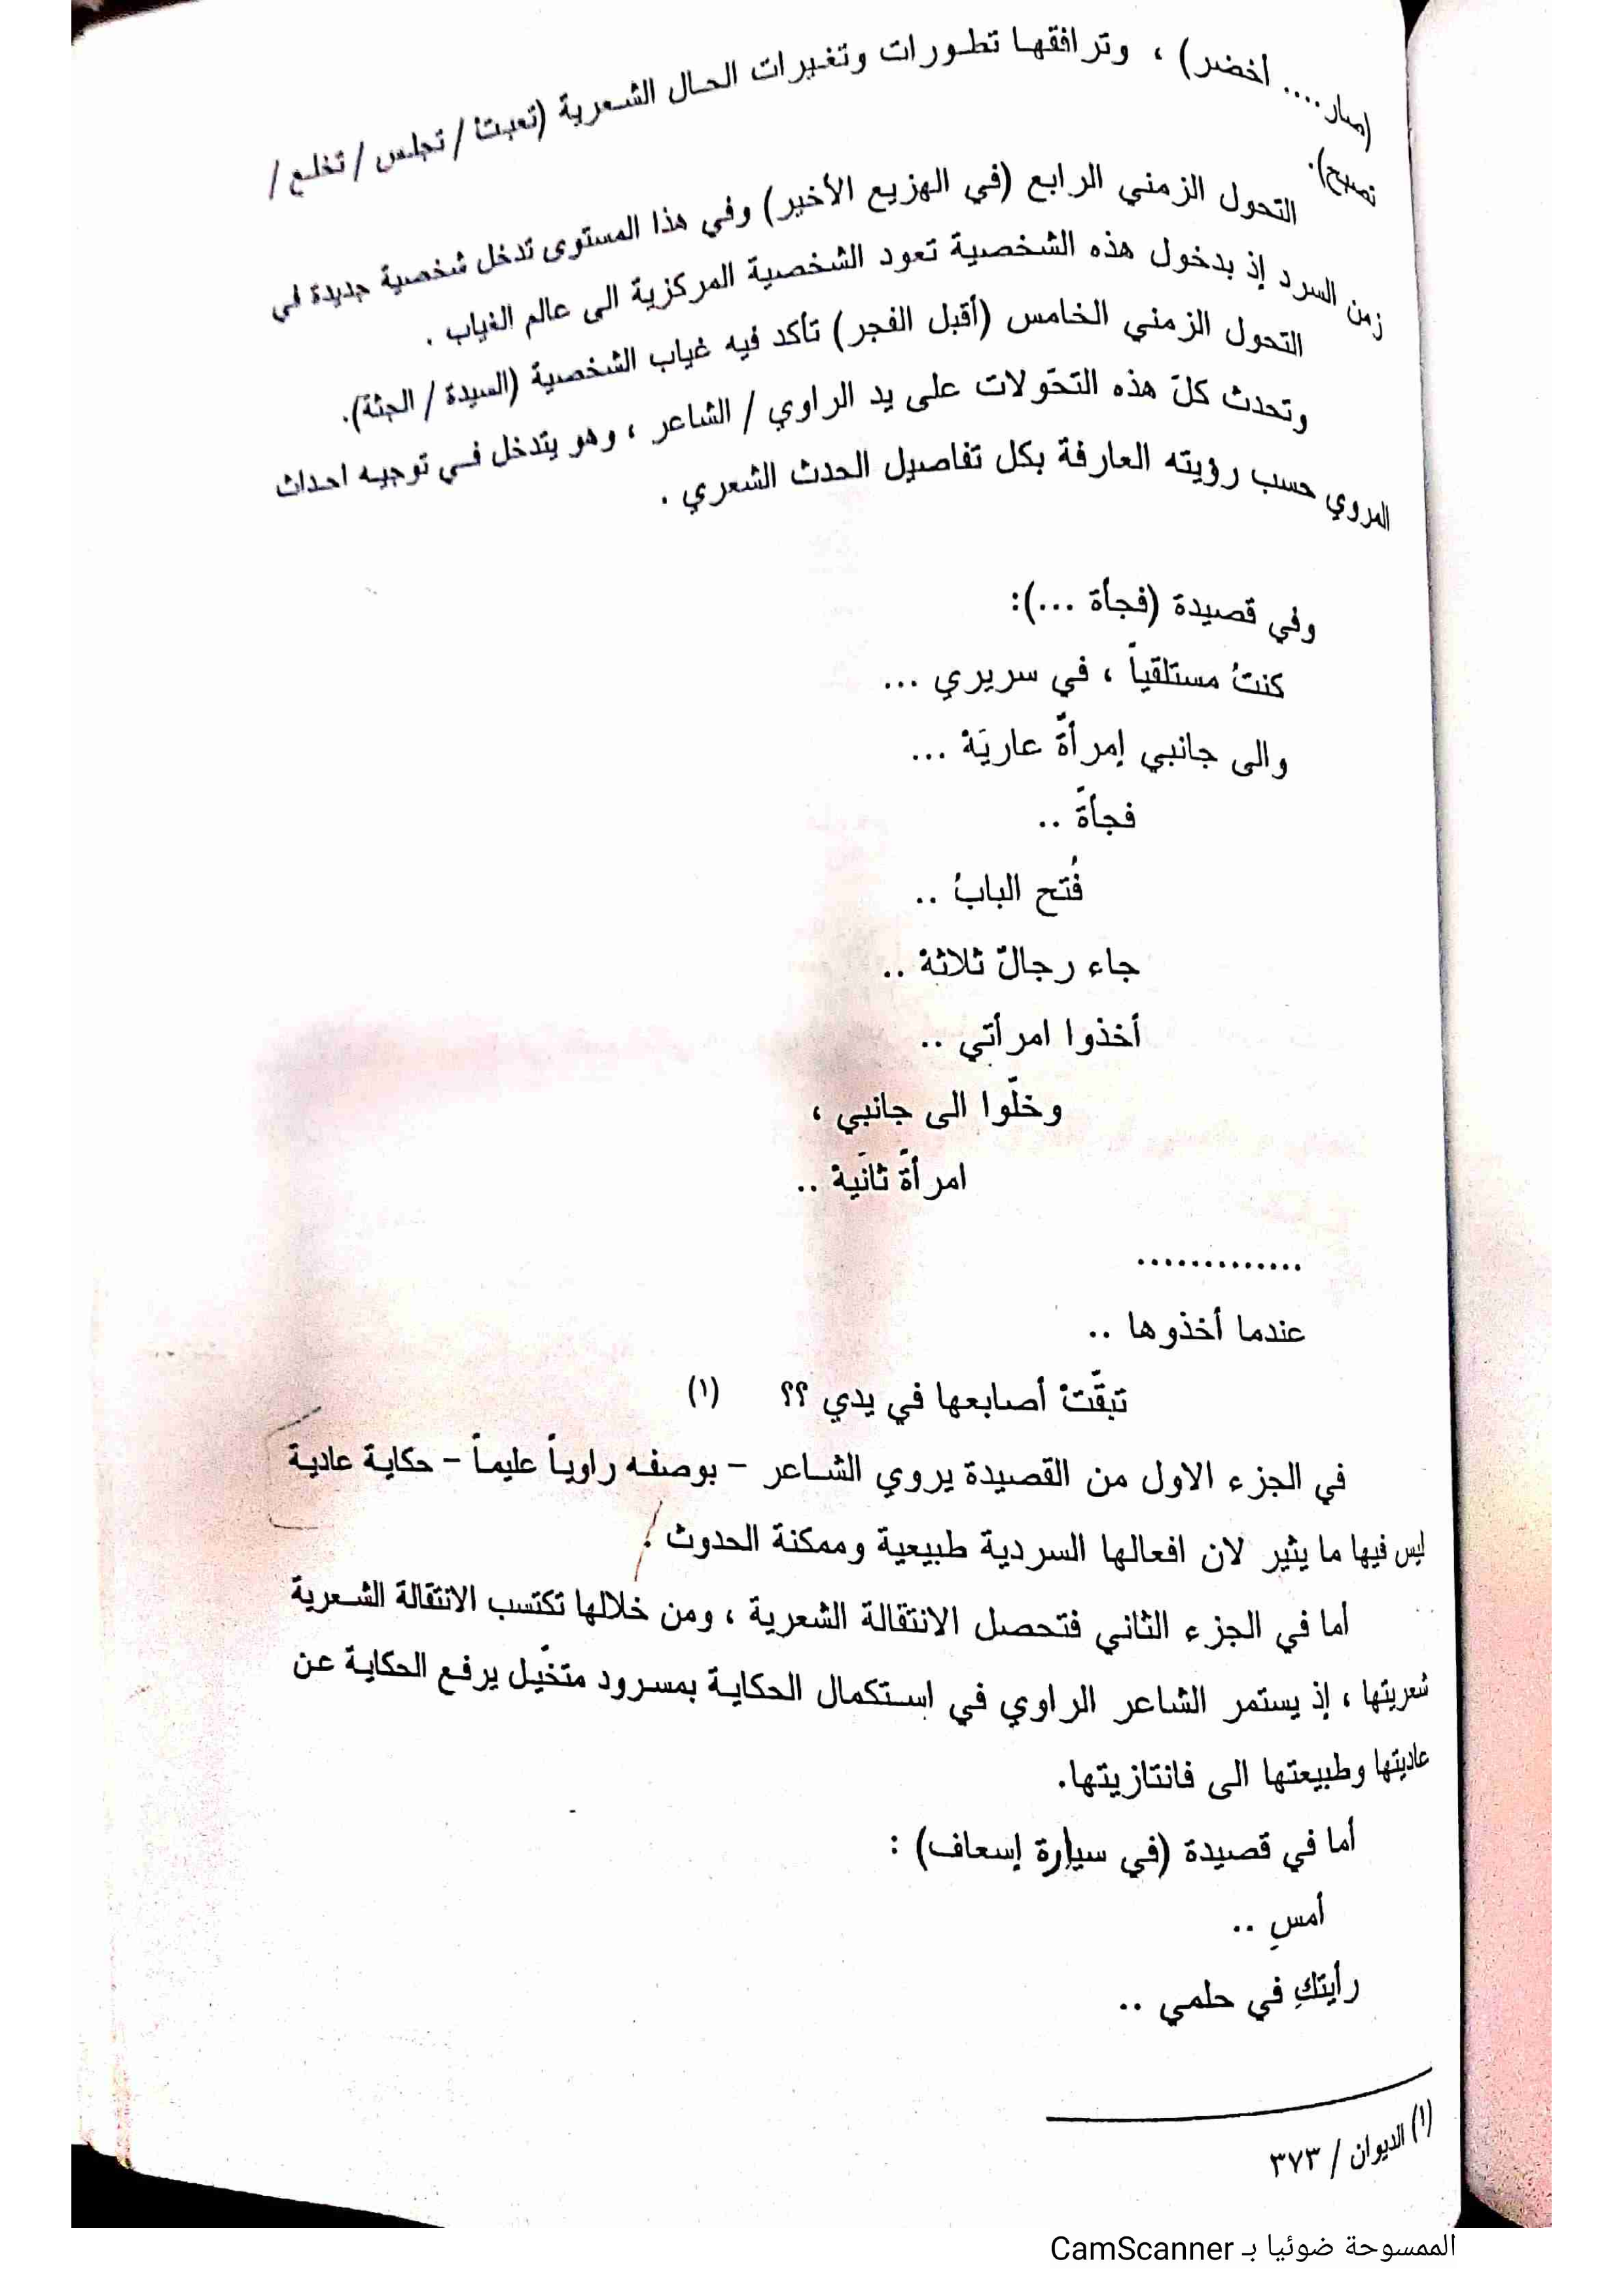 (صار.... أخضر) ، وترافقها تطورات وتغيرات الحال الشعرية (تعبتْ / تجلس / تخلع /
تصيح).
التحول الزمني الرابع (في الهزيع الأخير) وفي هذا المستوى تدخل شخصية جديدة في
زمن السرد إذ بدخول هذه الشخصية تعود الشخصية المركزية الى عالم الغياب .
التحول الزمني الخامس (أقبل الفجر) تأكد فيه غياب الشخصية (السيدة / الجثة).
وتحدث كلّ هذه التحّولات على يد الراوي / الشاعر ، وهو يتدخل في توجيه احداث
المروي حسب رؤيته العارفة بكل تفاصيل الحدث الشعري .
وفي قصيدة (فجأة ...):
كنتُ مستلقياً ، في سريري ...
والى جانبي إمرأةٌ عاريَةْ ...
فجأةً ..
فُتح البابُ ..
جاء رجالٌ ثلاثة ..
أخذوا امرأتي ..
وخلّوا الى جانبي ،
امرأةً ثانَية ..
.............
عندما أخذوها ..
تبقّتْ أصابعها في يدي ؟؟ (١)
في الجزء الاول من القصيدة يروي الشاعر – بوصفه راوياً عليماً – حكاية عادية
ليس فيها ما يثير لان افعالها السردية طبيعية وممكنة الحدوث .
أما في الجزء الثاني فتحصل الانتقالة الشعرية ، ومن خلالها تكتسب الانتقالة الشعرية
شعريتها ، إذ يستمر الشاعر الراوي في استكمال الحكاية بمسرود متخّيل يرفع الحكاية عن
عاديتها وطبيعتها الى فانتازيتها.
أما في قصيدة (في سيارة إسعاف) :
أمسِ ..
رأيتكِ في حلمي ..
(١) الديوان / ٣٧٣
الممسوحة ضوئيا بـ CamScanner